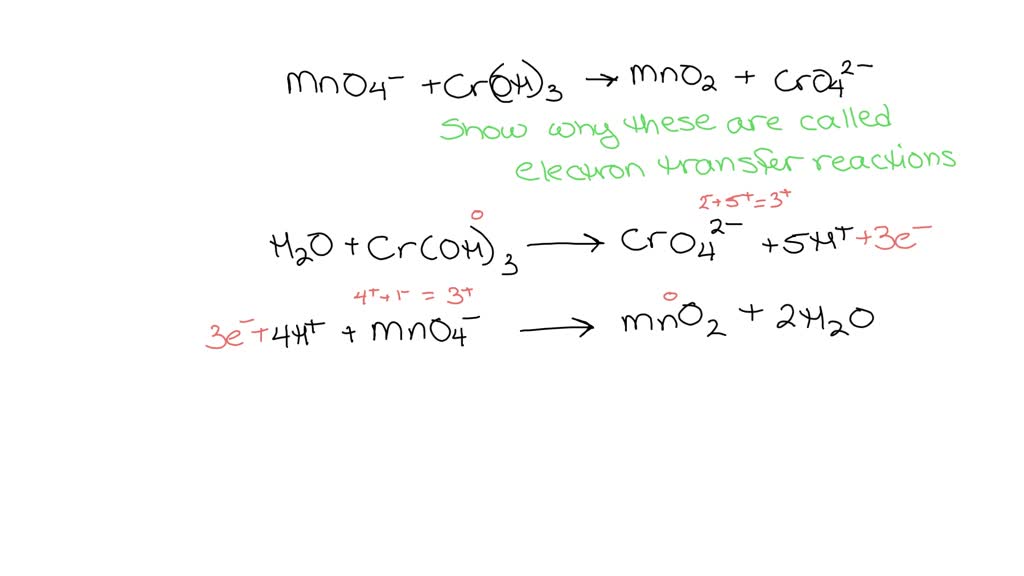 MnO₄⁻ + Cr(OH)₃ → MnO₂ + CrO₄²⁻
Show why these are called
electron transfer reactions
0 2⁻+5⁺=3⁺
H₂O + Cr(OH)₃ → CrO₄²⁻ + 5H⁺ + 3e⁻
4⁺+1⁻ = 3⁺ 0
3e⁻ + 4H⁺ + MnO₄⁻ → MnO₂ + 2H₂O